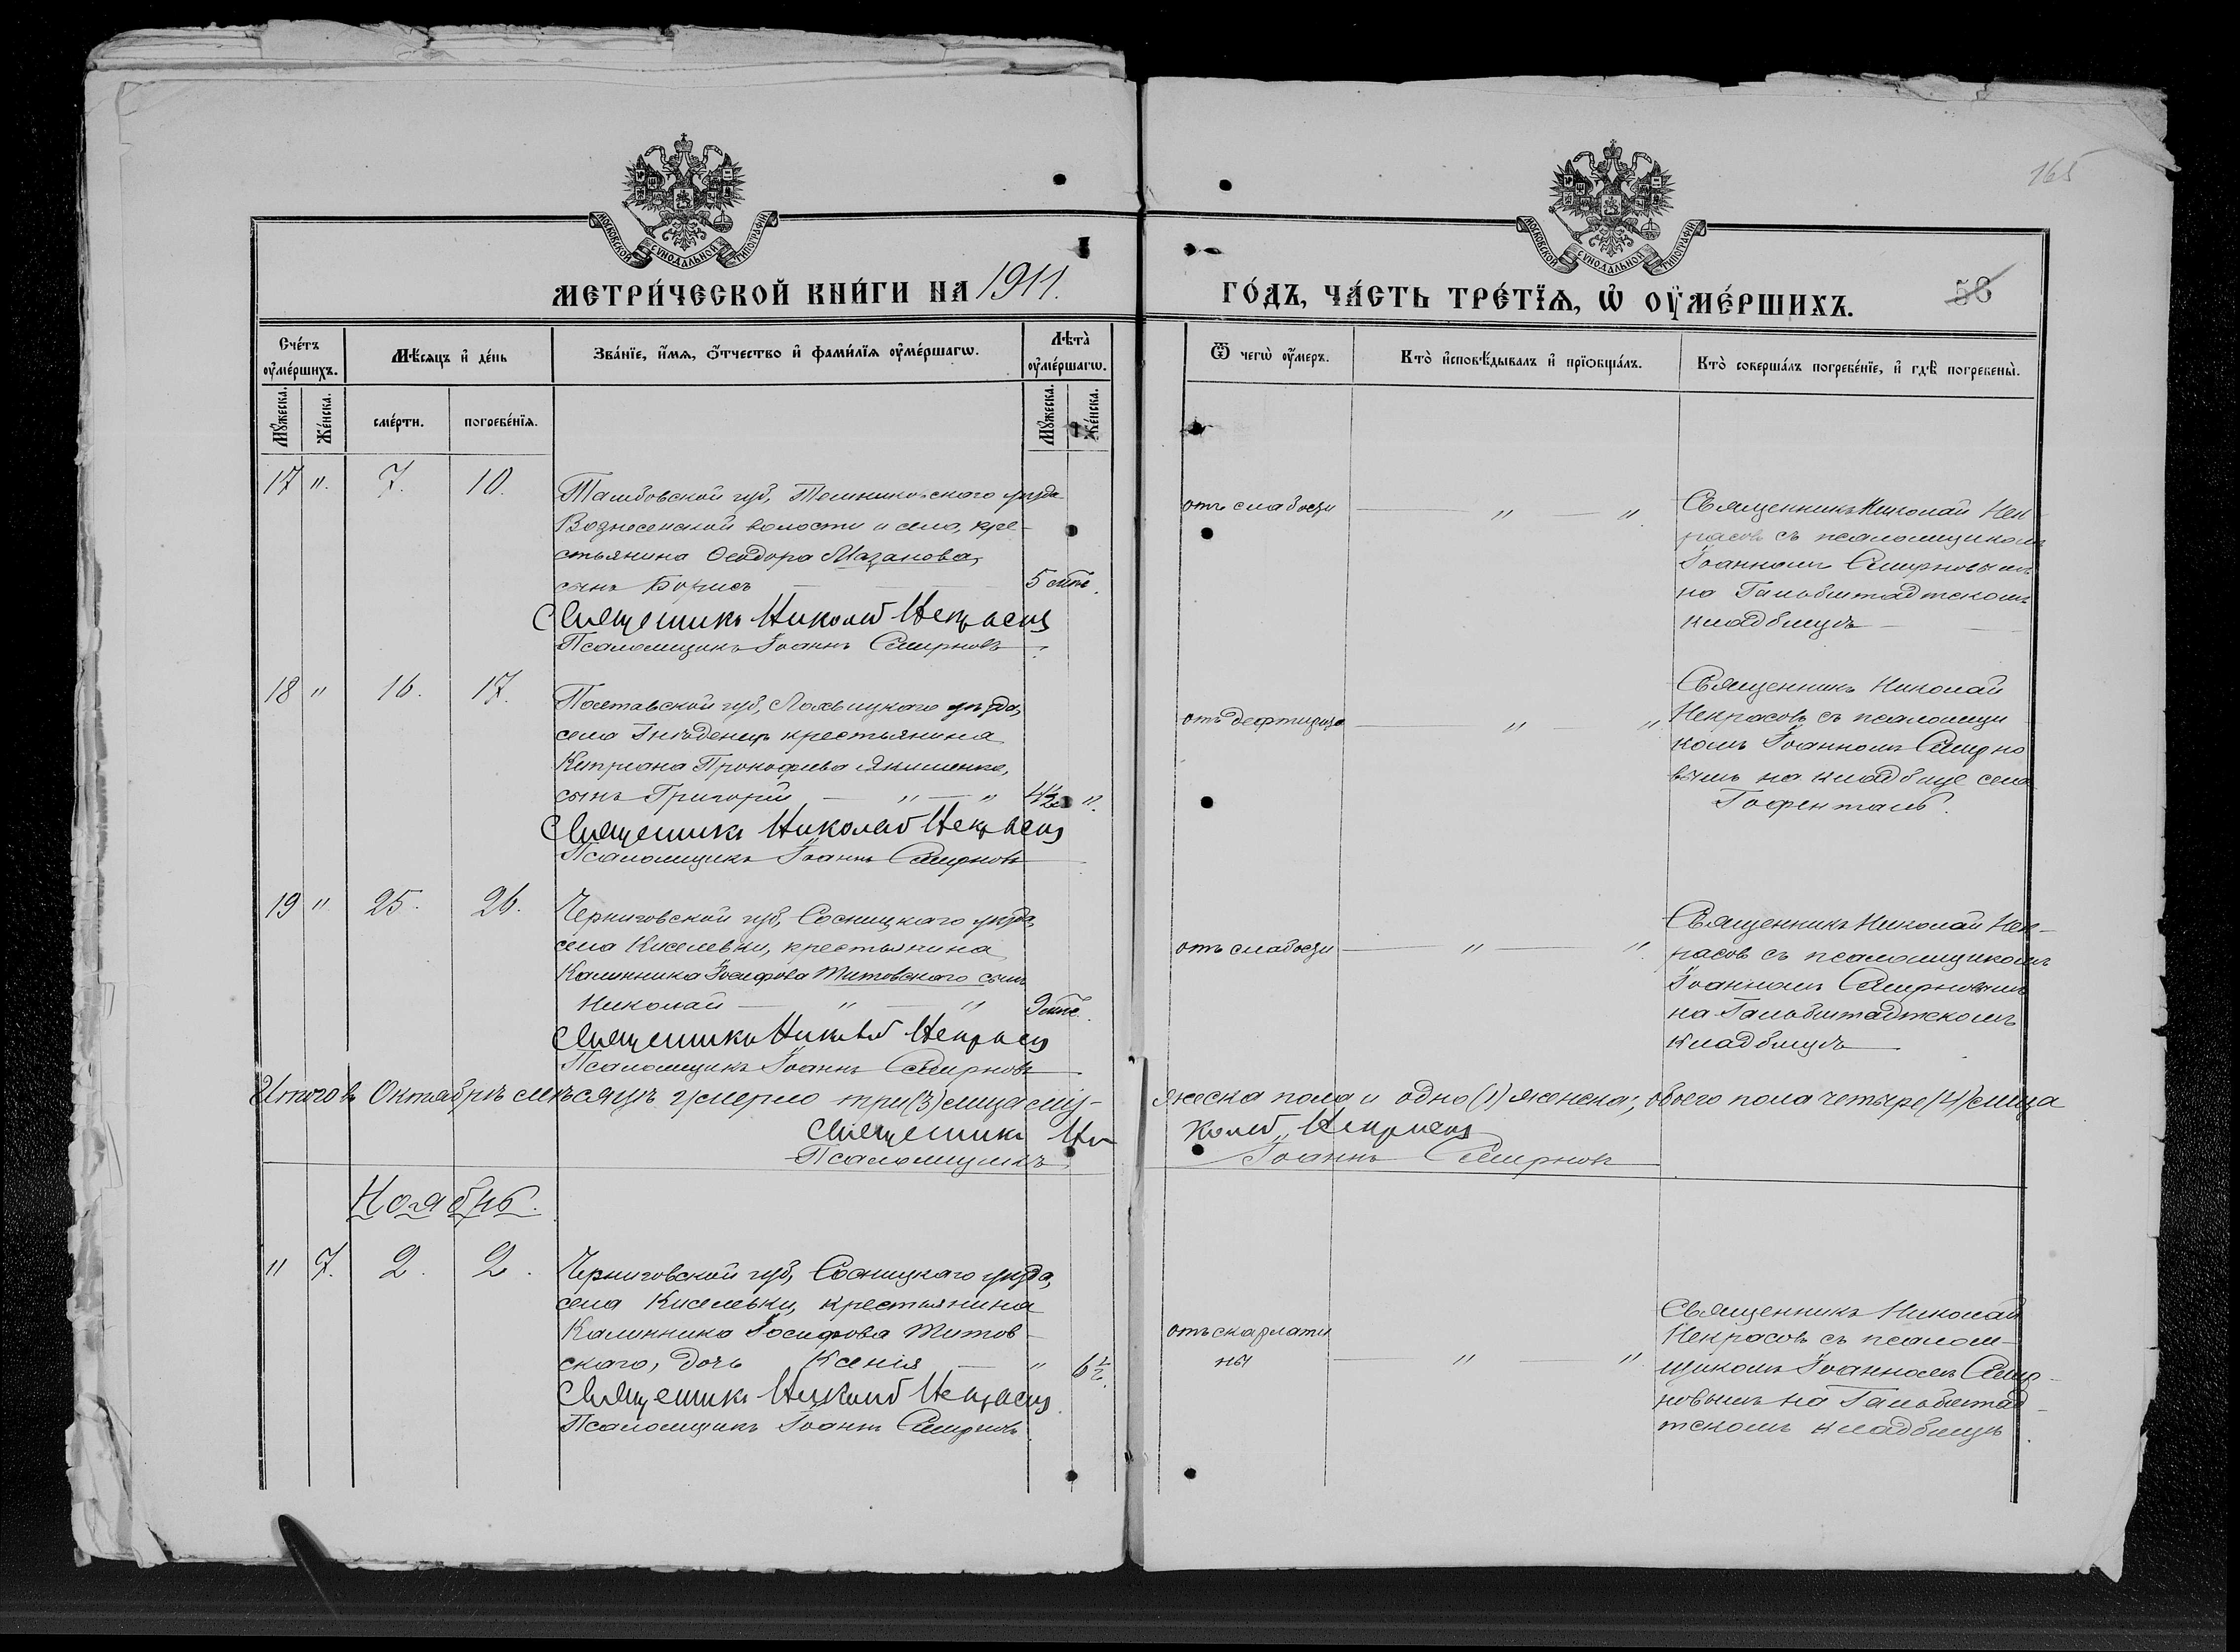 165
МОСКОВСКОЙ СѴНОДАЛЬНОЙ ТИПОГРАФІИ
МОСКОВСКОЙ СѴНОДАЛЬНОЙ ТИПОГРАФІИ
МЕТРИ́ЧЕСКОЙ КНИ́ГИ НА 1911. ГО́ДЪ, ЧА́СТЬ ТРЕ́ТЇѦ, Ѡ҆ ОУ҆МЕ́РШИХЪ.
58
Сче́тъ оу҆ме́ршихъ.
Мѣ́сяцъ и҆ де́нь
Зва́нїе, и҆́мѧ, ѻ҆́тчество и҆ фами́лїѧ оу҆ме́ршагѡ.
Лѣта̀ оу҆ме́ршагѡ.
Ѿ чегѡ̀ оу҆́меръ.
Кто̀ и҆сповѣ́дывалъ и҆ прїѻбща́лъ.
Кто̀ соверша́лъ погребе́нїе, и҆ гдѣ̀ погребены̀.
Мꙋ́жеска. Же́нска.
сме́рти. погребе́нїѧ.
Мꙋ́жеска. Же́нска.
17 " 7. 10.
Тамбовской губ, Темниковского уѣзда
Вознесенской волости и села, кре-
стьянина Ѳеодора Мазанова,
сынъ Борисъ — 5 мѣс.
Священникъ Николай Некрасовъ
Псаломщикъ Іоаннъ Смирновъ
отъ слабости — " — "
Священникъ Николай Нек-
расовъ съ псаломщикомъ
Іоанномъ Смирновымъ
на Гальбштадтскомъ
кладбищѣ —
18 " 16. 17.
Полтавской губ, Лохвицкаго уѣзда,
села Гнѣденцъ крестьянина
Кипріана Прокофіева Якименко,
сынъ Григорій — " — " ".
Священникъ Николай Некрасовъ
Псаломщикъ Іоаннъ Смирновъ
отъ дефтирита — " — "
Священникъ Николай
Некрасовъ съ псаломщи
комъ Іоанномъ Смирно
вымъ на кладбище села
Гофенталь.
19 " 25. 26.
Черниговской губ, Сосницкаго уѣзда,
села Киселевки, крестьянина
Калинника Іосифова Титовского сынъ
Николай — " — " мѣс.
Священникъ Николай Некрасовъ
Псаломщикъ Іоаннъ Смирновъ
отъ слабости — " — "
Священникъ Николай Нек-
расовъ съ псаломщикомъ
Іоанномъ Смирновымъ
на Гальбштадтскомъ
кладбищѣ
Итого въ Октябрѣ мѣсяцѣ умерло три (3) лица му- жеска пола и одно (1) женска; обоего пола четыре (4) лица
Священникъ Ни- колай Некрасовъ
Псаломщикъ Іоаннъ Смирновъ
Ноябрь.
" 7. 2. 2.
Черниговской губ, Сосницкаго уѣзда,
села Киселевки, крестьянина
Калинника Іосифова Титов-
ского, дочь Ксенія — " 6½.
Священникъ Николай Некрасовъ
Псаломщикъ Іоаннъ Смирновъ
отъ скарлати
ны — " — "
Священникъ Николай
Некрасовъ съ псалом-
щикомъ Іоанномъ Смир-
новымъ на Гальбштад-
тскомъ кладбищѣ